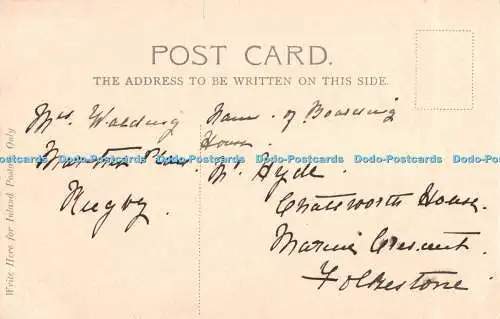 POST CARD.
THE ADDRESS TO BE WRITTEN ON THIS SIDE.
Write Here for Inland Postage Only
Mrs. Walding
Rugby.
Name of Boarding
House.
Mr. Hyde.
Chatsworth House.
Marine Crescent.
Folkestone.
Dodo-Postcards Dodo-Postcards Dodo-Postcards Dodo-Postcards Dodo-Postcards Dodo-Postcards